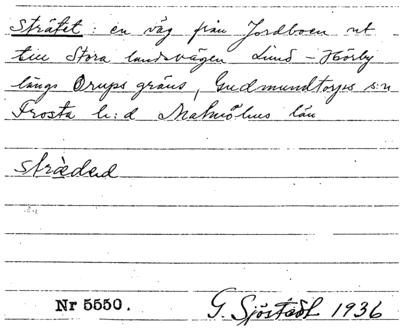 Strätet : en väg från Jordboen ut
till Stora landsvägen Lund – Hörby
längs Orups gräns, Gudmundtorps s:n
Frosta h:d Malmöhus län
sträded
Nr 5550. G. Sjöstedt 1936